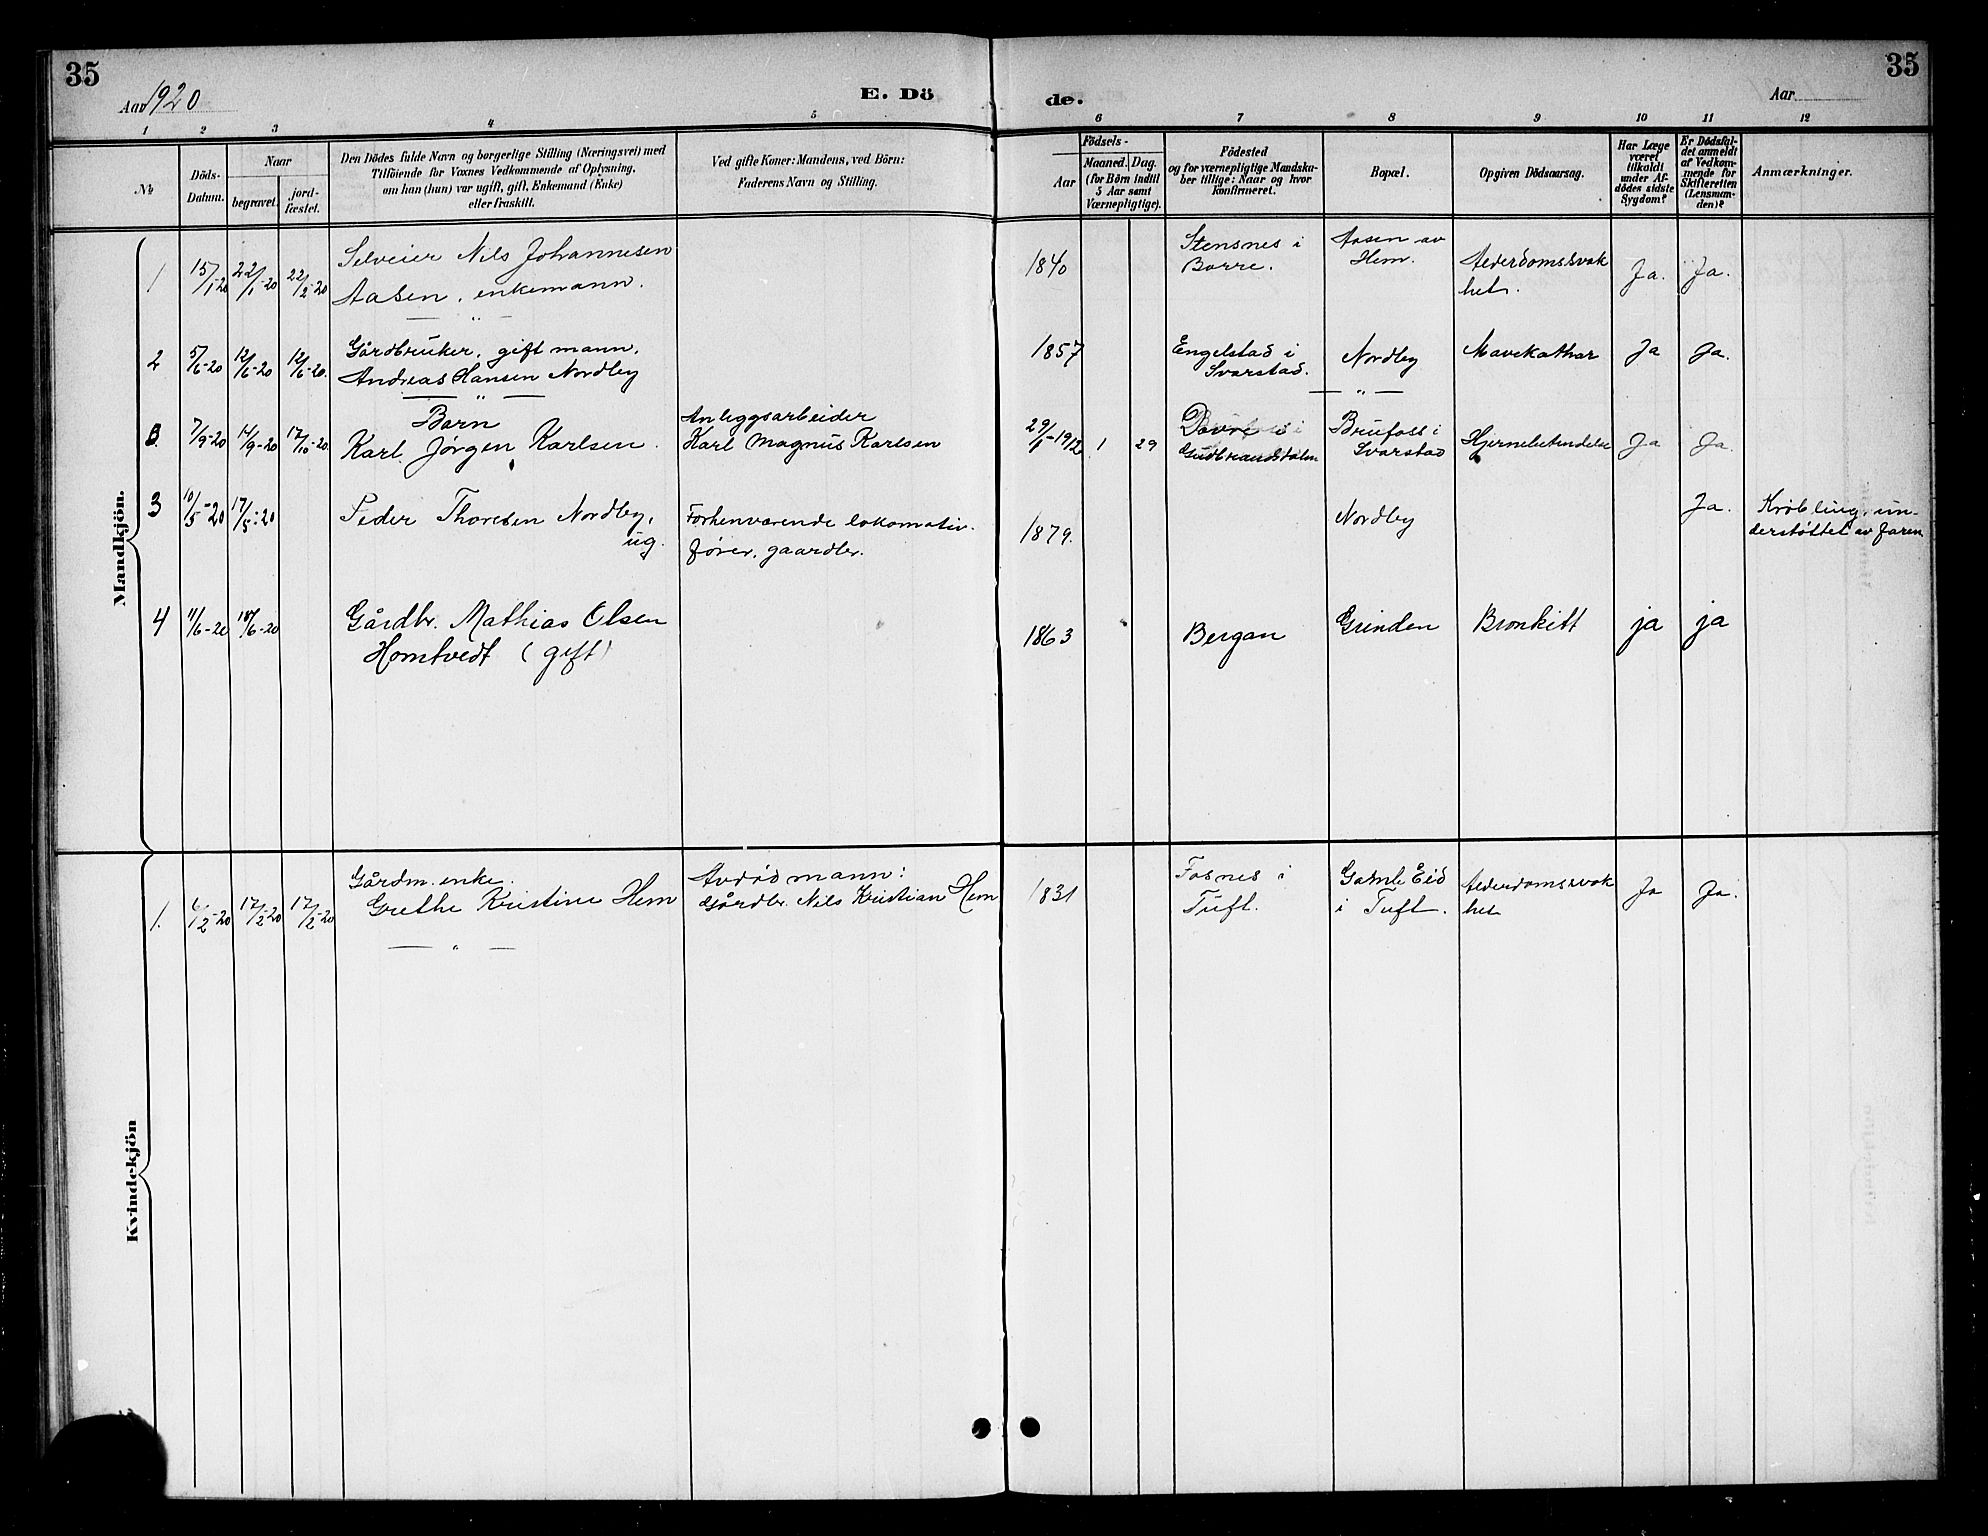 35
35
Aar 1920
E. Dö
de.
Aar
1 2 3 4 5 6 7 8 9 10 11 12
No
Döds-
Datum.
Naar
begravet.
jord-
fæstet.
Den Dödes fulde Navn og borgerlige Stilling (Næringsvei) med
Tilföiende for Voxnes Vedkommende af Oplysning,
om han (hun) var ugift, gift, Enkemand (Enke)
eller fraskilt.
Ved gifte Koner: Mandens, ved Börn:
Faderens Navn og Stilling.
Födsels-
Aar
Maaned. Dag.
(for Börn indtil
5 Aar samt
Værnepligtige).
Födested
og for værnepligtige Mandska-
ber tillige: Naar og hvor
konfirmeret.
Bopæl.
Opgiven Dödsaarsag.
Har Læge
været
tilkaldt
under Af-
dödes sidste
Sygdom?
Er Dödsfal-
det anmeldt
af Vedkom-
mende for
Skifteretten
(Lensman-
den)?
Anmærkninger.
Mandkjön.
1
15/1-20
22/1-20
22/2-20
Selveier Nils Johannesen
Aasen, enkemann.
1840
Stensnes i
Borre.
Aasen av
Hem.
Alderdomssvak
het.
Ja.
Ja.
2
5/6-20
12/6-20
12/6-20.
Gårdbruker, gift mann,
Andreas Hansen Nordby
1857
Engelstad i
Svarstad.
Nordby
Mavekathar
Ja
Ja.
3.
7/9-20
14/9-20
17/10-20.
Barn
Karl Jørgen Karlsen.
Anleggsarbeider
Karl Magnus Karlsen
29/1-1920
1
29
Dovre i
Gudbrandsdalen
Brufoss i
Svarstad
Hjernebetendelse
Ja
Ja.
3
10/5-20
17/5-20
Peder Thoresen Nordby,
ug.
Forhenværende lokomotiv-
fører, gaardbr.
1879.
Nordby
Ja.
Krøbling, un-
derstøttet av faren
4
11/6-20
18/6-20
Gårdbr. Mathias Olsen
Homtvedt (gift)
1863
Bergan
Grinden
Bronkitt
ja
ja
Kvindekjön
1.
6/2-20
17/2-20
17/2-20
Gårdm. enke.
Grethe Kristine Hem
Avdød mann:
Gårdbr. Nils Kristian Hem
1831
Fosnes i
Tuft.
Gamle Eid
i Tuft.
Alderdomssvak
het
Ja
Ja.